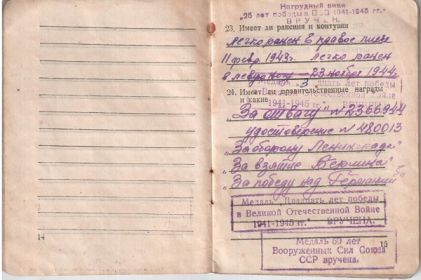 Нагрудный знак
"25 лет победы в В.О.В 1941-1945 гг."
ВРУЧЕН.
23. Имеет ли ранения и контузии
легко ранен в правое плечо
11 февр. 1943г. легко ранен
в левую 23 ноября 1944г.
24. Имеет ли правительственные награды
и какие
1941-1945 гг.
"За отвагу" № 2366944
удостоверение № 480013
"За оборону Ленинграда"
"За взятие Берлина"
"За победу над Германией"
Медаль "Двадцать лет победы
в Великой Отечественной Войне
1941-1945 гг. ВРУЧЕНА.
14
Медаль 50 лет
Вооруженных Сил Союза
ССР вручена.